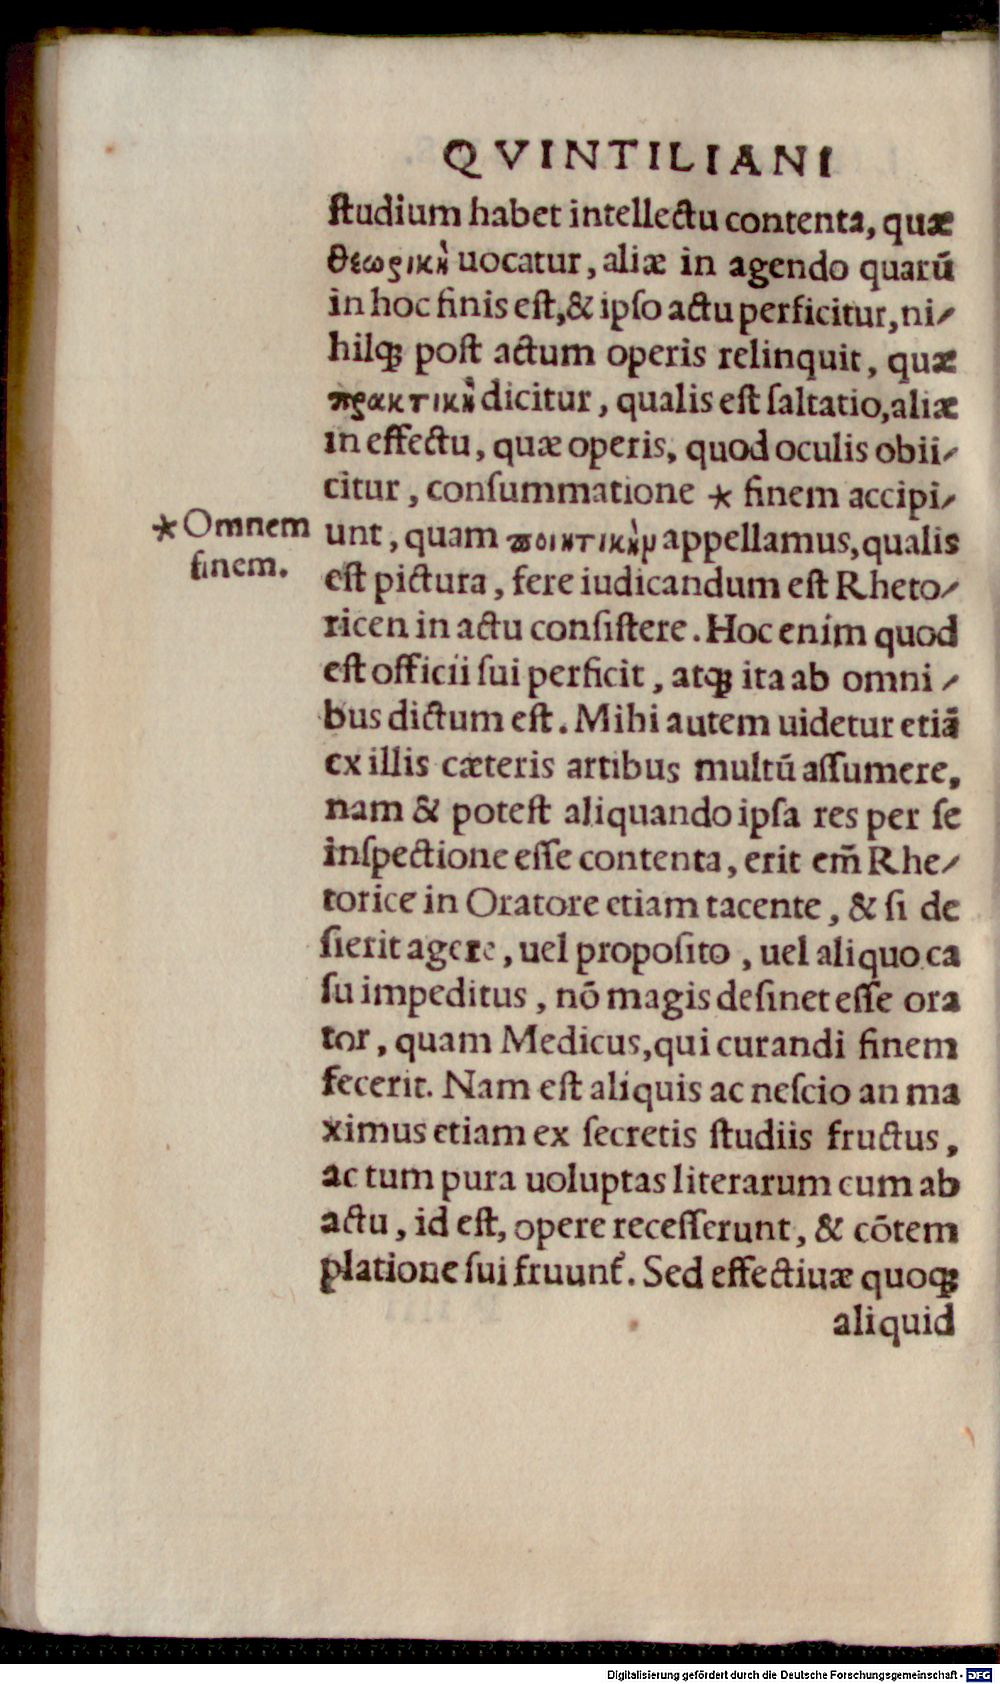 QVINTILIANI
ſtudium habet intellectu contenta, quæ
θεωρικὴ uocatur, aliæ in agendo quarũ
in hoc finis eſt,& ipſo actu perficitur, ni⸗
hilqꝫ poſt actum operis relinquit, quæ
πρακτικὴ dicitur, qualis eſt ſaltatio, aliæ
in effectu, quæ operis, quod oculis obii⸗
citur, conſummatione * finem accipi⸗
*Omnem
finem.
unt, quam ποιητικὴν appellamus, qualis
eſt pictura, fere iudicandum eſt Rheto⸗
ricen in actu conſiſtere. Hoc enim quod
eſt officii ſui perficit, atqꝫ ita ab omni⸗
bus dictum eſt. Mihi autem uidetur etiã
ex illis cæteris artibus multũ aſſumere,
nam & poteſt aliquando ipſa res per ſe
inſpectione eſſe contenta, erit em̃ Rhe⸗
torice in Oratore etiam tacente, & ſi de
ſierit agere, uel propoſito, uel aliquo ca
ſu impeditus, nõ magis deſinet eſſe ora
tor, quam Medicus, qui curandi finem
fecerit. Nam eſt aliquis ac neſcio an ma
ximus etiam ex ſecretis ſtudiis fructus,
ac tum pura uoluptas literarum cum ab
actu, id eſt, opere receſſerunt, & cõtem
platione ſui fruunt᷑. Sed effectiuæ quoqꝫ
aliquid
Digitalisierung gefördert durch die Deutsche Forschungsgemeinschaft - DFG